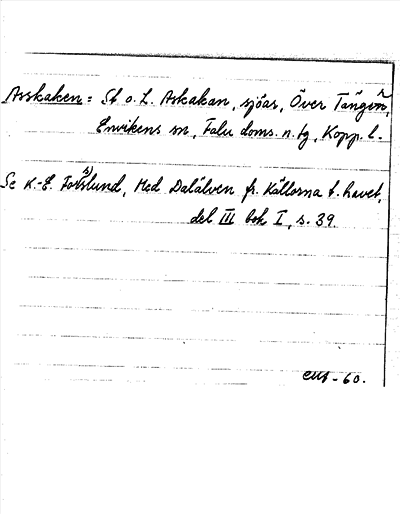 Asskaken = St o. L. Askakan, sjöar, Över Tängern,
Envikens sn, Falu doms. n. tg, Kopp. l.
Se K.-E. Forsslund, Med Dalälven fr. källorna t. havet,
del III bok I, s. 39.
-60.